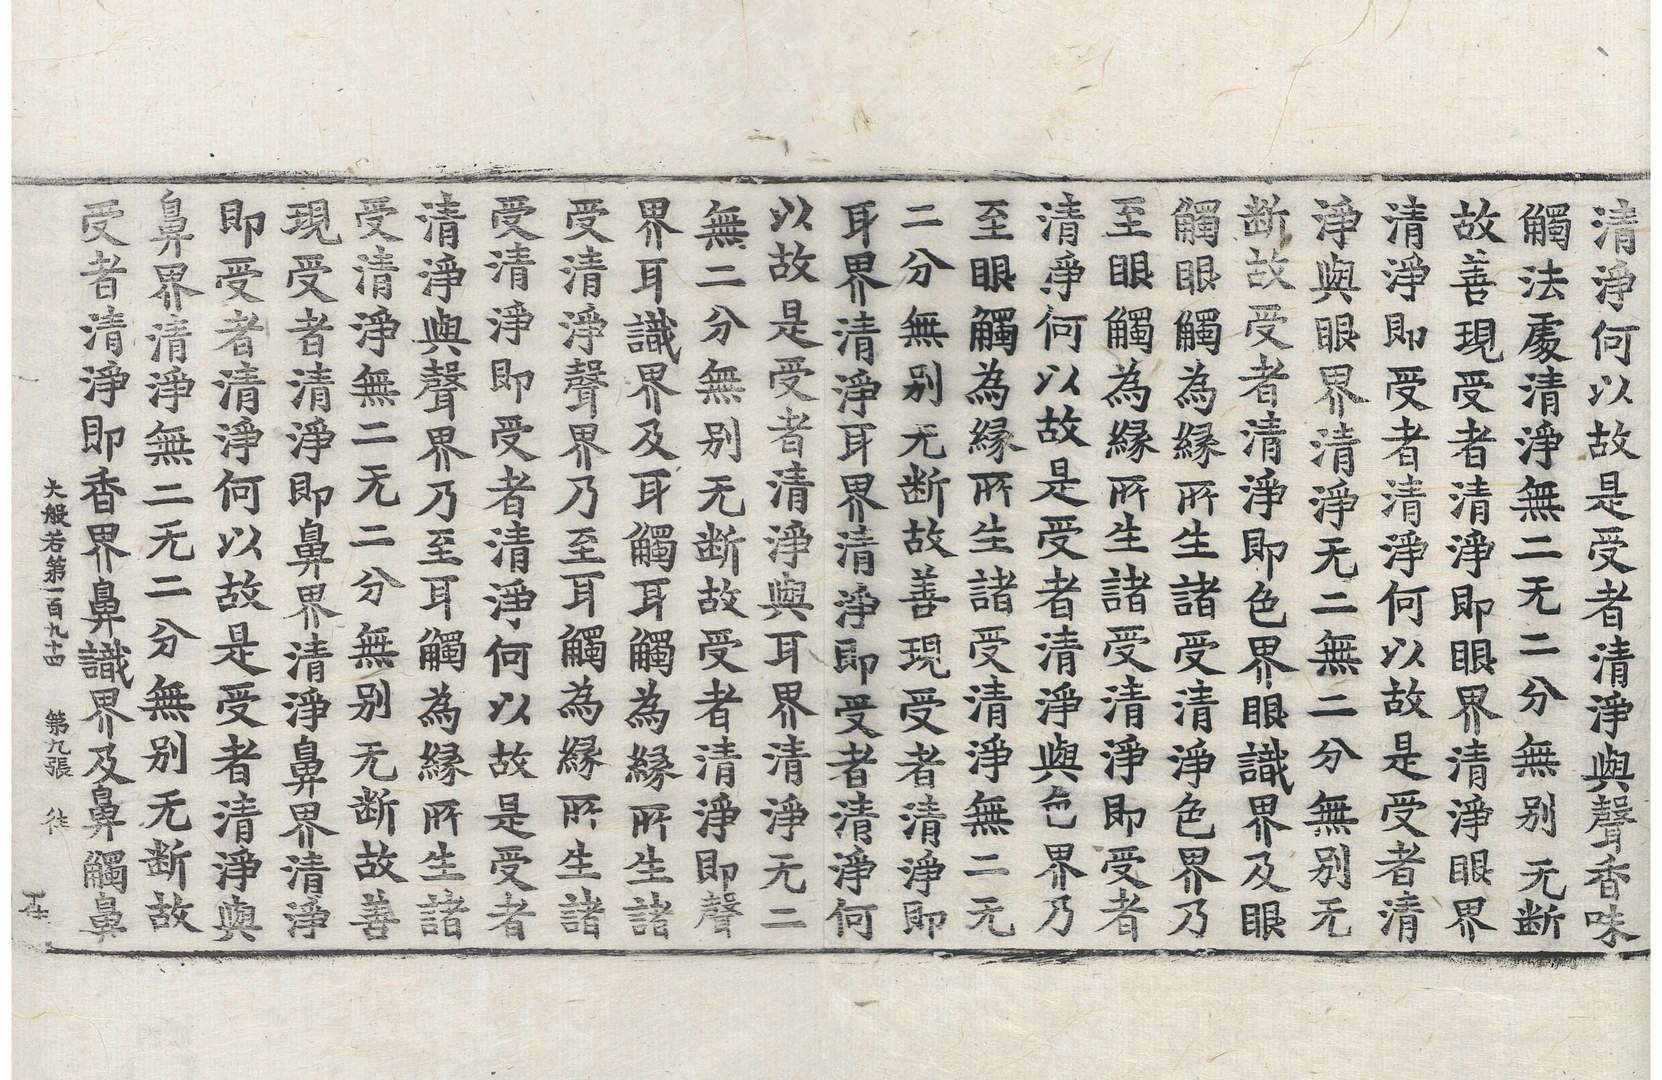 清淨何以故是受者清淨與聲香味
觸法處清淨無二无二分無别无断
故善現受者清淨即眼界清淨眼界
清淨即受者清淨何以故是受者清
淨與眼界清淨无二無二分無别无
断故受者清淨即色界眼識界及眼
觸眼觸為縁所生諸受清淨色界乃
至眼觸為縁所生諸受清淨即受者
清淨何以故是受者清淨與色界乃
至眼觸為縁所生諸受清淨無二无
二分無别无断故善現受者清淨即
耳界清淨耳界清淨即受者清淨何
以故是受者清淨與耳界清淨无二
無二分無别无断故受者清淨即聲
界耳識界及耳觸耳觸為縁所生諸
受清淨聲界乃至耳觸為縁所生諸
受清淨即受者清淨何以故是受者
清淨與聲界乃至耳觸為縁所生諸
受清淨無二无二分無别无断故善
現受者清淨即鼻界清淨鼻界清淨
即受者清淨何以故是受者清淨與
鼻界清淨無二无二分無别无断故
受者清淨即香界鼻識界及鼻觸鼻
大般若第一百九十四 第九張 往